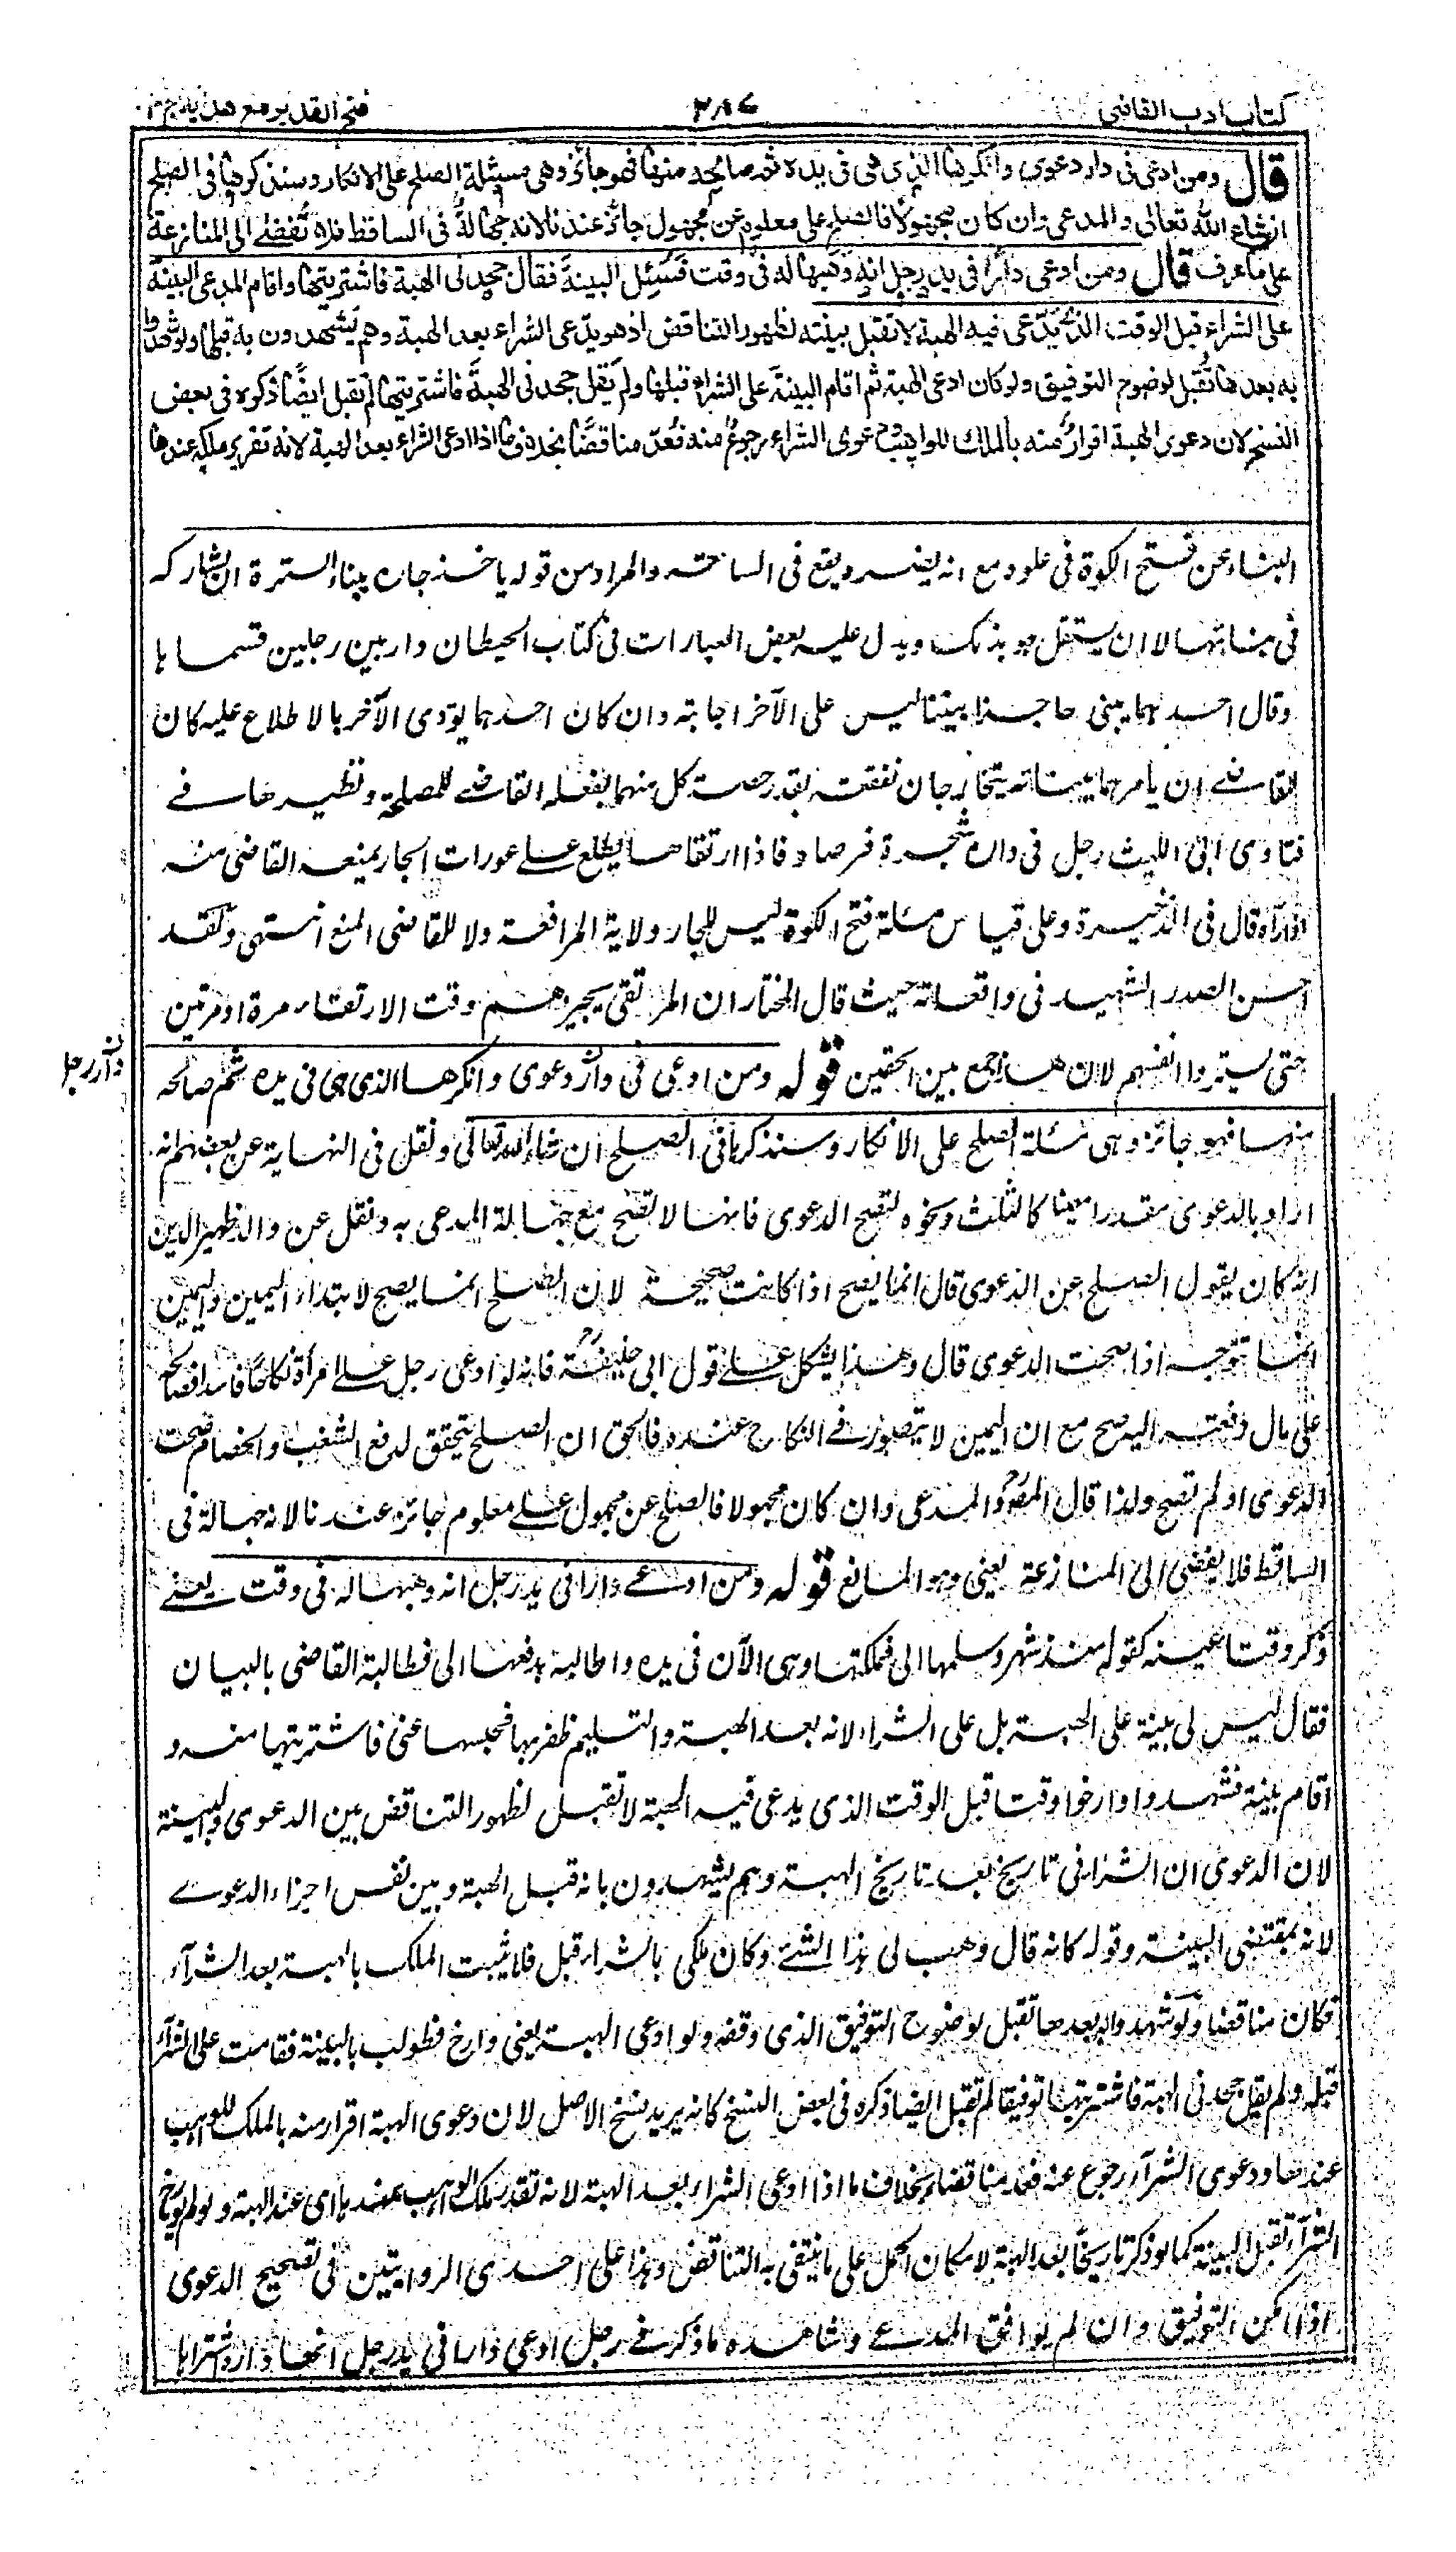 كتاب ادب القاضي
٢٨٧
فتح القدير مع هدايه ج ٣
قال ومن ادعى فى دار دعوى وانكرها الذى هى فى يده ثم صالحه منها فهو جائز وهى مسئلة الصلح على الانكار وسنذكرها فى الصلح
انشاء الله تعالى والمدعى وان كان مجهولا فالصلح على معلوم عن مجهول جائز عندنا لانه جهالة فى الساقط فلا تفضى الى المنازعة
على ما عرف قال ومن ادعى دارا فى يد رجل انه وهبها له فى وقت فسئل البينة فقال جحدنى الهبة فاشتريتها واقام المدعى البينة
على الشراء قبل الوقت الذى يدعى فيه الهبة لا تقبل بينته لظهور التناقض اذ هو يدعى الشراء بعد الهبة وهم يشهدون به قبلها ولو شهدوا
به بعدها تقبل لوضوح التوفيق ولو كان ادعى الهبة ثم اقام البينة على الشراء قبلها ولم يقل جحدنى الهبة فاشتريتها لم تقبل ايضا ذكره فى بعض
النسخ لان دعوى الهبة اقرار منه بالملك للواهب ودعوى الشراء رجوع منه فعد مناقضا بخلاف ما اذا ادعى الشراء بعد الهبة لانه تقرير ملكه عندها
البناء عن فتح الكوة فى علوه مع انه يضر ويقع فى الساحة والمراد من قوله ياخذ جاره ببناء السترة ان يشاركه
فى بنائها لا ان يستقل هو بذلك ويدل عليه بعض العبارات فى كتاب الحيطان دار بين رجلين قسماها
وقال احدهما يبنى حاجزا بيننا ليس على الآخر اجابته وان كان احدهما يؤذى الآخر بالاطلاع عليه كان
للقاضى ان يامرهما ببناء حائط يخرجان نفقته بقدر حصة كل منهما يفعله القاضى للمصلحة ونظيرها فى
فتاوى ابى الليث رجل فى داره شجرة فرصاد فاذا ارتقاها يطلع على عورات الجار يمنعه القاضى منه
اذا رآه قال فى الذخيرة وعلى قياس مسئلة فتح الكوة ليس للجار ولاية المرافعة ولا للقاضى المنع انتهى ولقد
احسن الصدر الشهيد فى واقعاته حيث قال المختار ان المرتقى يخبرهم وقت الارتقاء مرة او مرتين
حتى يستروا انفسهم لان هذا جمع بين الحقين قوله ومن ادعى فى دار دعوى وانكرها الذى هى فى يده ثم صالحه
ن
دار رجل
منها فهو جائز وهى مسئلة الصلح على الانكار وسنذكرها فى الصلح ان شاء الله تعالى ونقل فى النهاية عن بعضهم انه
اراد بالدعوى مقدرا معينا كالثلث ونحوه لتصح الدعوى فانها لا تصح مع جهالة المدعى به ونقل عن والد ظهير الدين
انه كان يقول الصلح عن الدعوى قال انما يصح اذا كانت صحيحة لان الصلح انما يصح لابتداء اليمين واليمين
انما تتوجه اذا صحت الدعوى قال وهذا يشكل على قول ابى حنيفة رح فانه لو ادعى رجل على امرأة نكاحا فاسدا فصالح
على مال دفعته اليه صح مع ان اليمين لا يتصور فى النكاح عنده فالحق ان الصلح يتحقق لدفع الشغب والخصام صحت
الدعوى او لم تصح ولذا قال المصنف رح والمدعى وان كان مجهولا فالصلح عن مجهول على معلوم جائز عندنا لانه جهالة فى
الساقط فلا يفضى الى المنازعة يعنى وهو المانع قوله ومن ادعى دارا فى يد رجل انه وهبها له فى وقت يعنى
ذكر وقتا عينه كقوله منذ شهر وسلمها الى فملكتها وهى الآن فى يده واطالبه بدفعها الى فطالبه القاضى بالبيان
فقال ليس لى بينة على الهبة بل على الشراء لانه بعد الهبة والتسليم ظفر بها فحبسها عنى فاشتريتها منه و
اقام بينة فشهدوا وارخوا وقتا قبل الوقت الذى يدعى فيه الهبة لا تقبل لظهور التناقض بين الدعوى والبينة
لان الدعوى ان الشراء فى تاريخ بعد تاريخ الهبة وهم يشهدون بانه قبل الهبة وبين نفس اجزاء الدعوى
لانه بمقتضى البينة وقوله كانه قال وهب لى هذا الشئ وكان ملكى بالشراء قبل فلا يثبت الملك بالهبة بعد الشراء
فكان مناقضا ولو شهدوا به بعدها تقبل لوضوح التوفيق الذى وقفه ولو ادعى الهبة يعنى وارخ فطولب بالبينة فقامت على الشراء
قبله ولم يقل جحدنى الهبة فاشتريتها توفيقا لم تقبل ايضا ذكره فى بعض النسخ كانه يريد نسخ الاصل لان دعوى الهبة اقرار منه بالملك للواهب
عندها ودعوى الشراء رجوع عنه فعد مناقضا بخلاف ما اذا ادعى الشراء بعد الهبة لانه تقرر ملك الواهب عندها اى عند الهبة ولو لم يؤرخ
الشراء تقبل البينة كما لو ذكر تاريخا بعد الهبة لامكان الحمل على ما ينتفى به التناقض وهذا على احدى الروايتين فى تصحيح الدعوى
اذا امكن التوفيق وان لم يوافق المدعى وشاهده ما ذكر فى رجل ادعى دارا فى يد رجل انها داره اشتراها